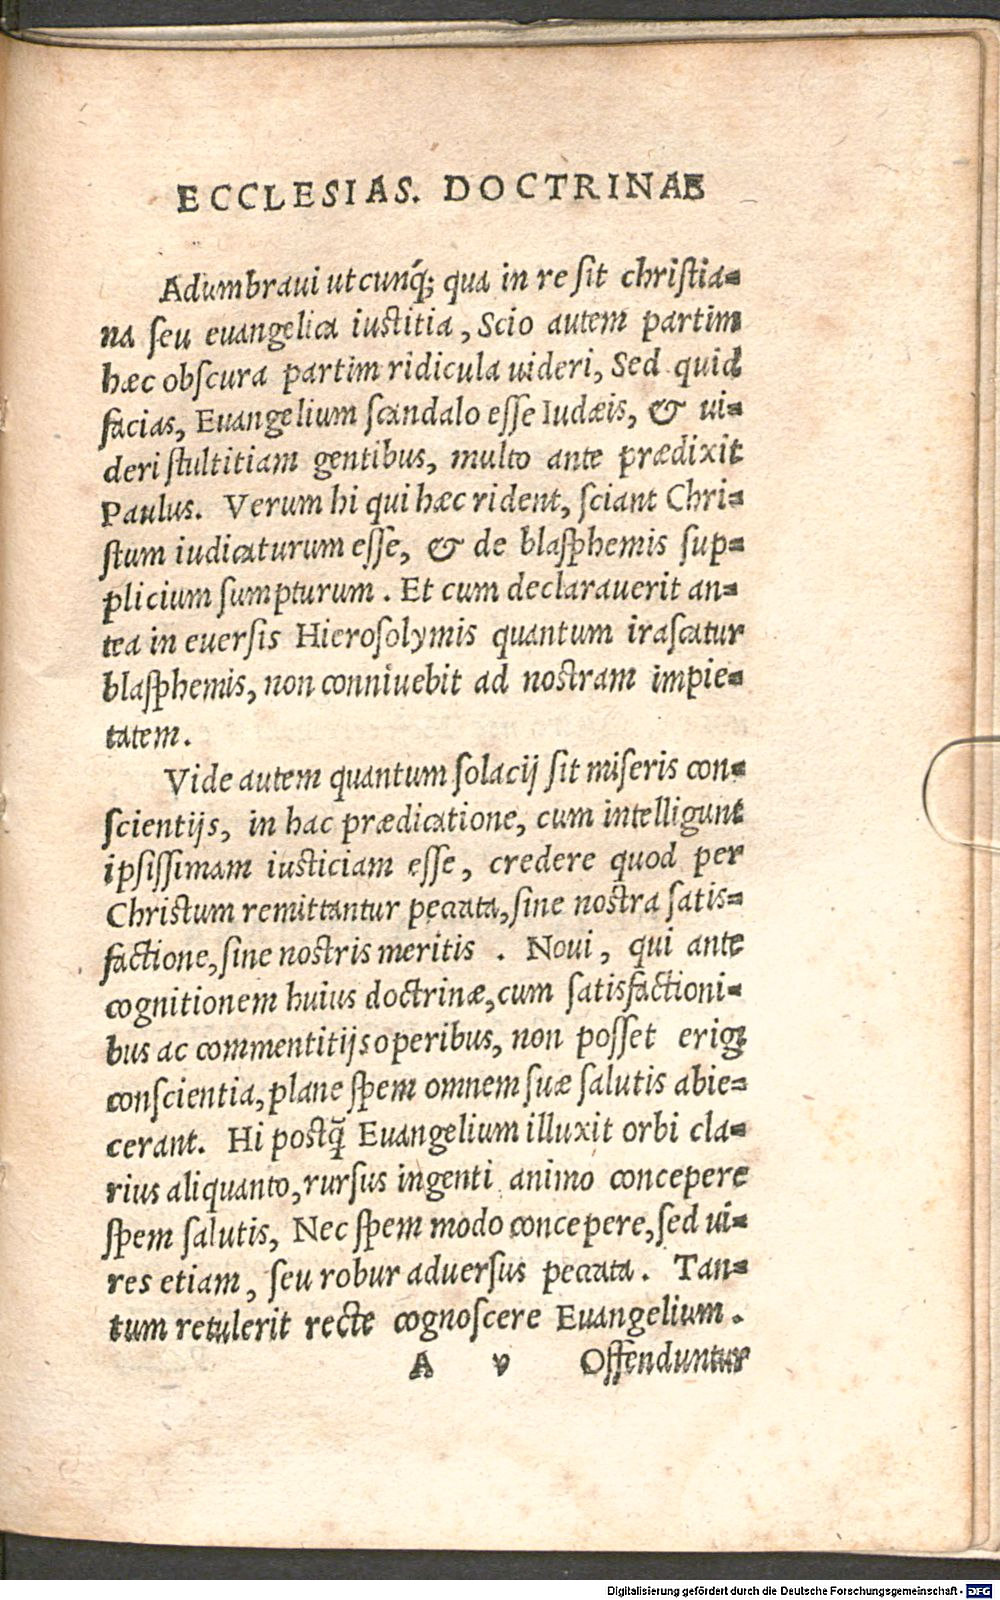 ECCLESIAS. DOCTRINAE
Adumbraui utcunq́; qua in re sit christia=
na seu euangelica iustitia, Scio autem partim
hæc obscura partim ridicula uideri, Sed quid
facias, Euangelium scandalo esse Iudæis, & ui=
deri stultitiam gentibus, multo ante prædixit
Paulus. Verum hi qui hæc rident, sciant Chri=
stum iudicaturum esse, & de blasphemis sup=
plicium sumpturum. Et cum declarauerit an=
tea in euersis Hierosolymis quantum irascatur
blasphemis, non conniuebit ad nostram impie=
tatem.
Vide autem quantum solacij sit miseris con=
scientijs, in hac prædicatione, cum intelligunt
ipsissimam iusticiam esse, credere quod per
Christum remittantur peccata, sine nostra satis=
factione, sine nostris meritis. Noui, qui ante
cognitionem huius doctrinæ, cum satisfactioni=
bus ac commentitijs operibus, non posset erigi
conscientia, plane spem omnem suæ salutis abie=
cerant. Hi postq̃ Euangelium illuxit orbi cla=
rius aliquanto, rursus ingenti animo concepere
spem salutis, Nec spem modo concepere, sed ui=
res etiam, seu robur aduersus peccata. Tan=
tum retulerit recte cognoscere Euangelium.
A v Offenduntur
Digitalisierung gefördert durch die Deutsche Forschungsgemeinschaft - DFG